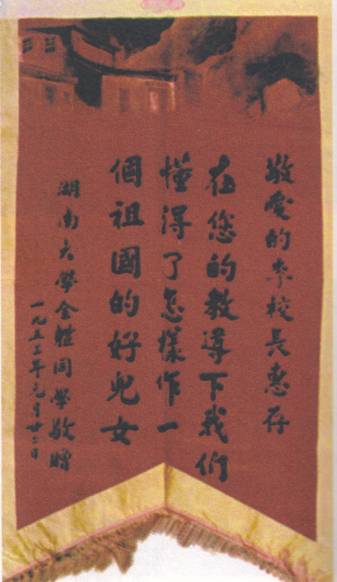 敬愛的李校長惠存
在您的教導下我們
懂得了怎樣作一
個祖國的好兒女
湖南大學全體同學敬贈
一九五三年元月廿二日